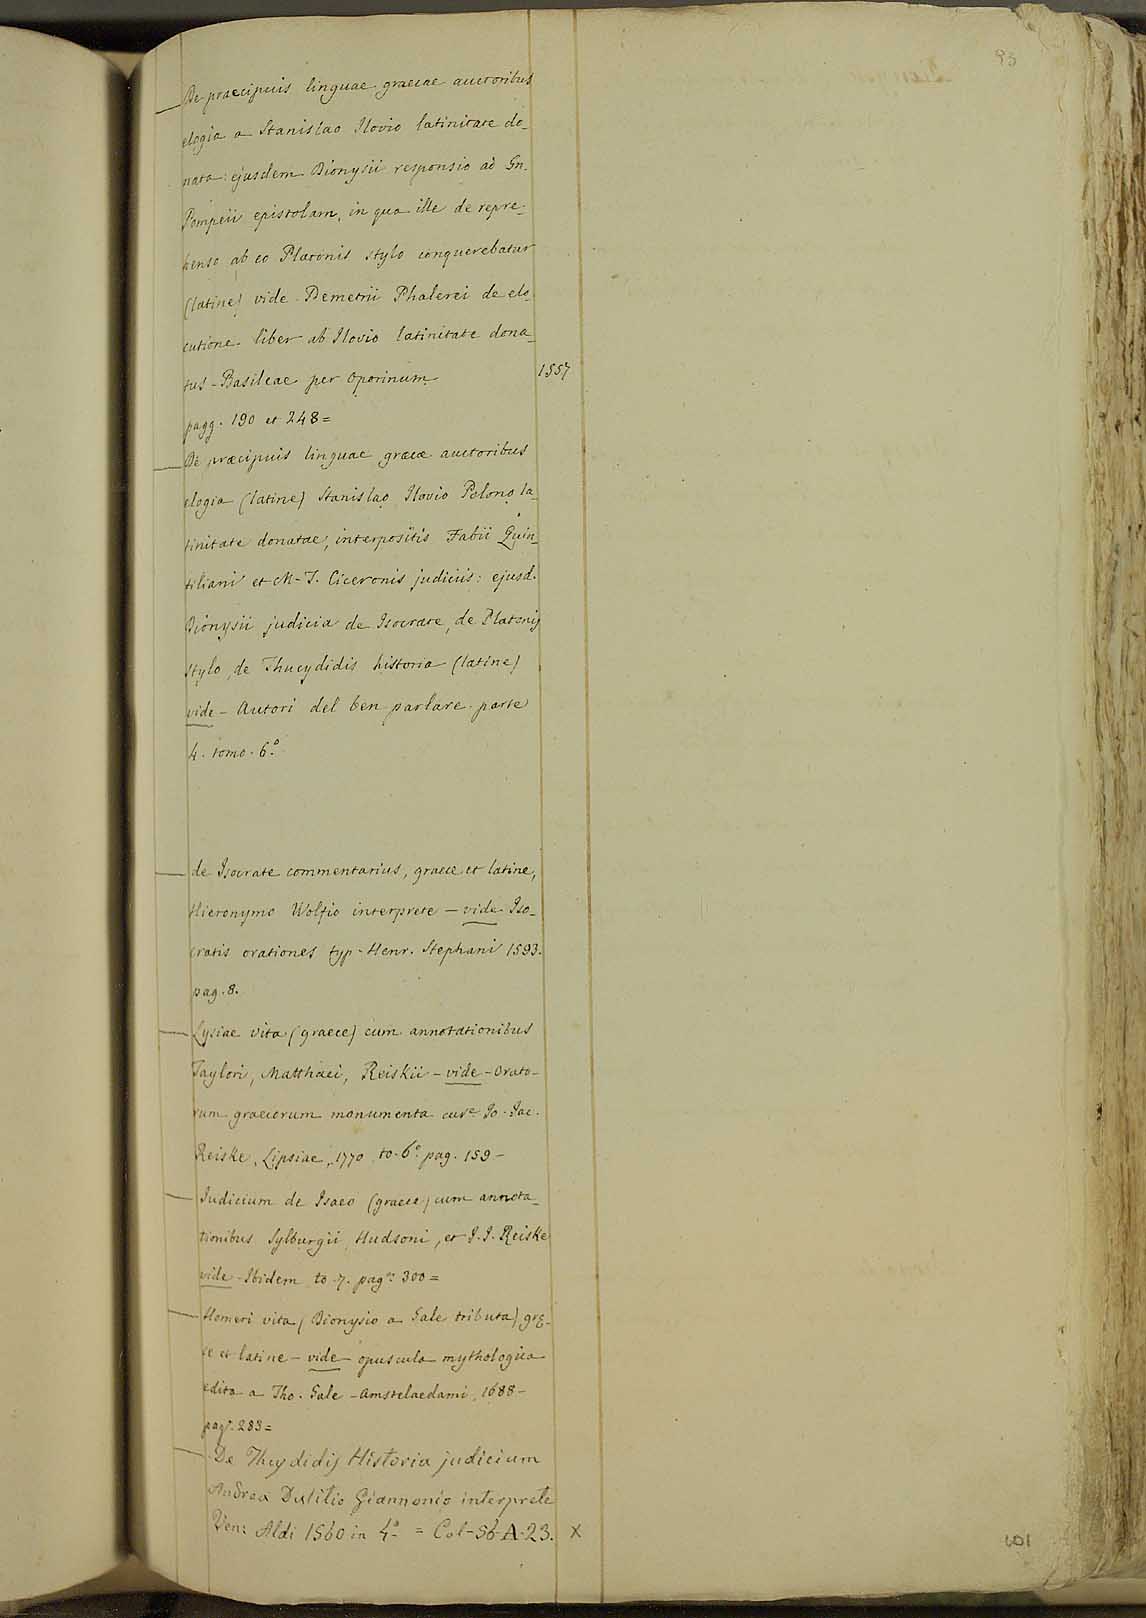 93
De praecipuis linguae graecae auctoribus
elogia a Stanislao Ilovio latinitate do_
nata: ejusdem Dionysii responsio ad Gn.
Pompeii epistolam, in qua ille de repre-
henso ab eo Platonis stylo conquerebatur
(latine) vide - Demetrii Phalerei de elo
cutione liber ab Ilovio latinitate dona_
tus - Basileae per Oporinum 1557
pagg. 190 et 248 =
De præcipuis linguae graecæ auctoribus
elogia (latine) Stanislao Ilovio Polono la_
tinitate donatae, interpositis Fabii Quin_
tiliani et M-T. Ciceronis judiciis: ejusd.
Dionysii judicia de Isocrate, de Platonis
stylo, de Thucydidis historia (latine)
vide - Autori del ben parlare parte
4. tomo. 6.º
de Isocrate commentarius, graece et latine,
Hieronymo Wolfio interprete - vide Iso_
cratis orationes typ- Henr. Stephani 1593.
pag. 8.
Lysiae vita (graece) cum annotationibus
Taylori, Matthæi, Reiskii - vide - orato-
rum graecorum monumenta curª Io. Iac.
Reiske, Lipsiae, 1770 to. 6.º pag. 159 -
Iudicium de Isaeo (graece) cum annota_
tionibus Sylburgii, Hudsoni, et I. I. Reiske
vide - Ibidem to 7. pag. 300 =
Homeri vita (Dionysio a Gale tributa) grę-
ce et latine - vide opuscula mythologica
edita a Tho. Gale - Amstelaedami, 1688 -
pag. 283 =
De Thuydidis Historia judicium
Andrea Dutitio Giannonio interprete
Ven: Aldi 1560 in 4.º = Col-56-A-23. X
101